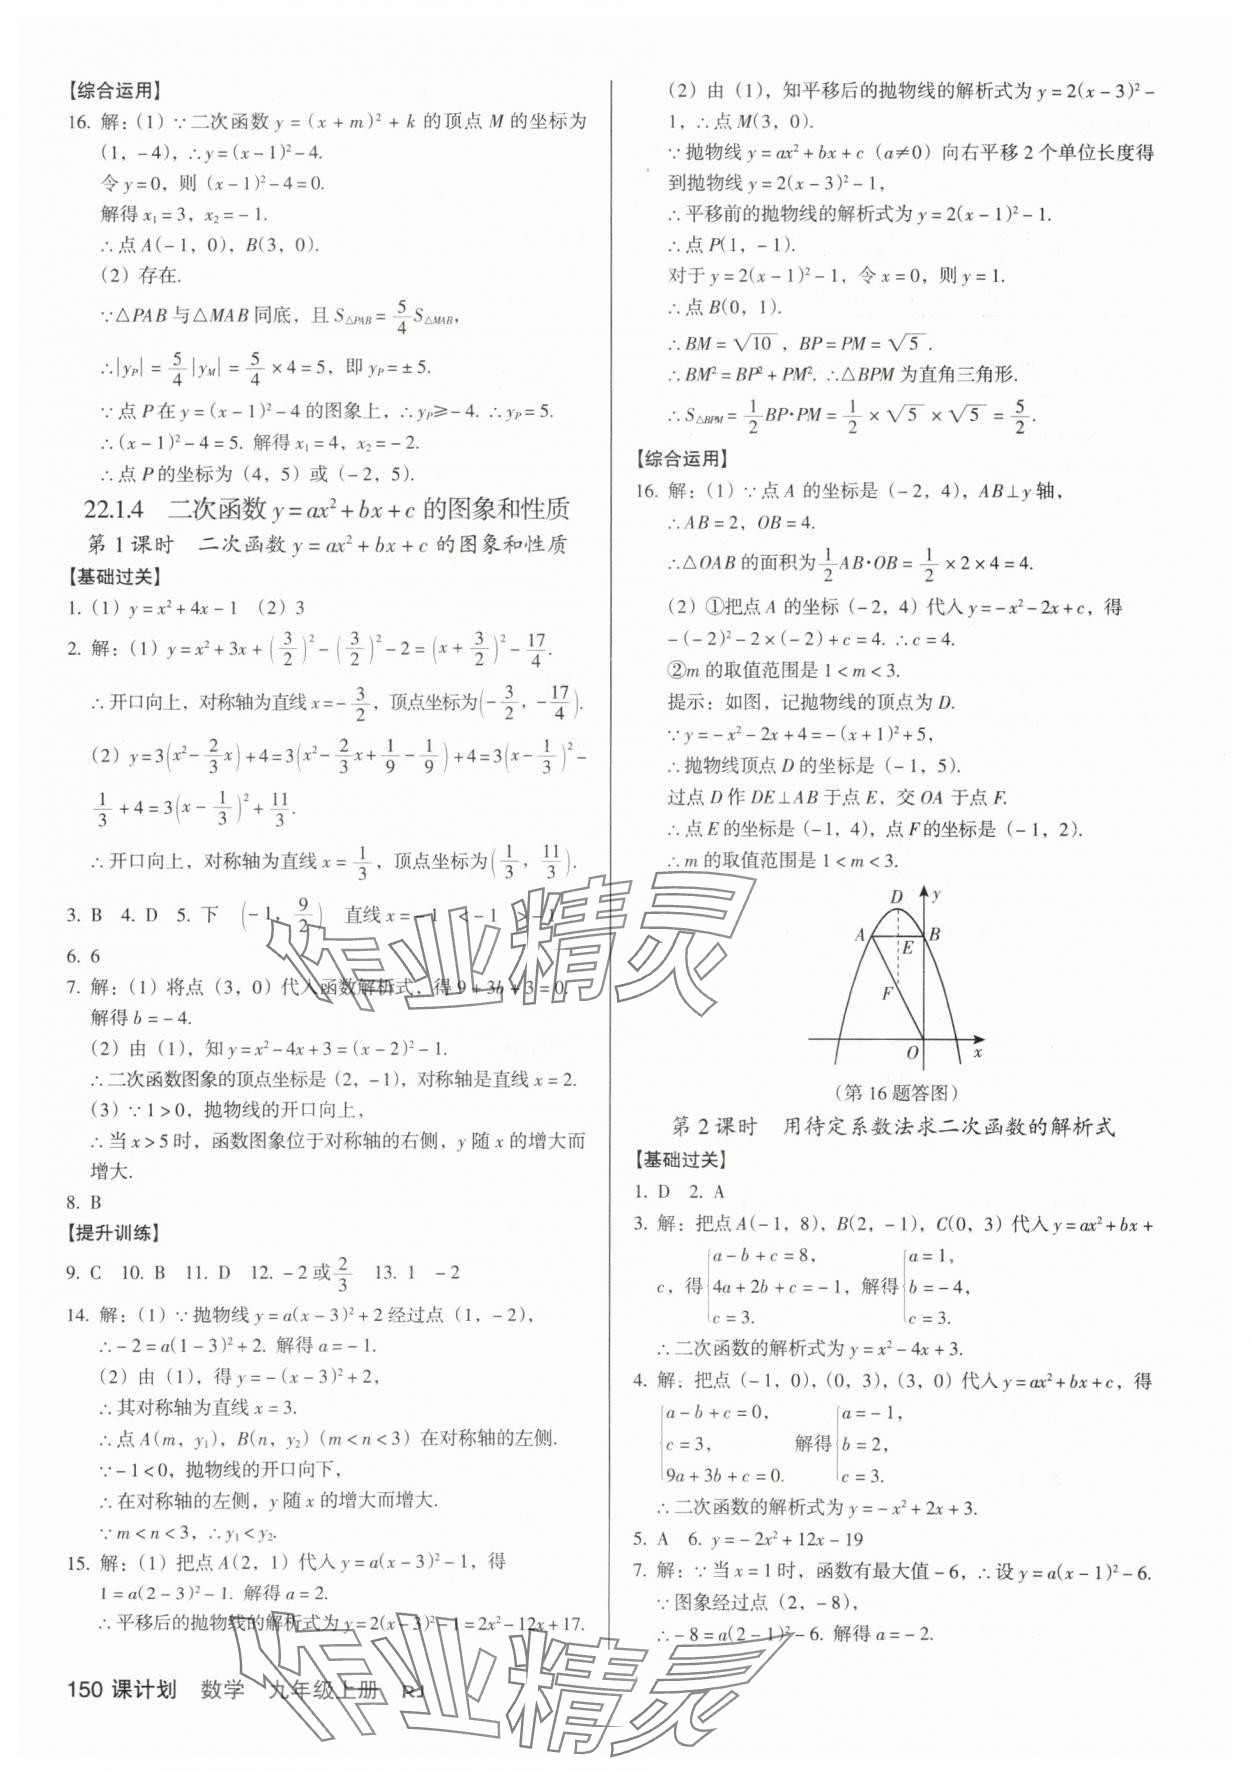 【综合运用】
16. 解：(1) ∵二次函数 y=(x+m)²+k 的顶点 M 的坐标为
(1，-4)，∴y=(x-1)²-4.
令 y=0，则 (x-1)²-4=0.
解得 x₁=3，x₂=-1.
∴点 A(-1，0)，B(3，0).
(2) 存在.
∵△PAB 与△MAB 同底，且 S△PAB=5/4 S△MAB，
∴|yP|=5/4|yM|=5/4×4=5，即 yP=±5.
∵点 P 在 y=(x-1)²-4 的图象上，∴yP≥-4. ∴yP=5.
∴(x-1)²-4=5. 解得 x₁=4，x₂=-2.
∴点 P 的坐标为 (4，5) 或 (-2，5).
22.1.4 二次函数 y=ax²+bx+c 的图象和性质
第 1 课时 二次函数 y=ax²+bx+c 的图象和性质
【基础过关】
1. (1) y=x²+4x-1 (2) 3
2. 解：(1) y=x²+3x+(3/2)²-(3/2)²-2=(x+3/2)²-17/4.
∴开口向上，对称轴为直线 x=-3/2，顶点坐标为(-3/2，-17/4).
(2) y=3(x²-2/3x)+4=3(x²-2/3x+1/9-1/9)+4=3(x-1/3)²-
1/3+4=3(x-1/3)²+11/3.
∴开口向上，对称轴为直线 x=1/3，顶点坐标为(1/3，11/3).
3. B 4. D 5. 下 (-1，9/2) 直线 x=-1 <-1 >-1
6. 6
7. 解：(1) 将点 (3，0) 代入函数解析式，得 9+3b+3=0.
解得 b=-4.
(2) 由 (1)，知 y=x²-4x+3=(x-2)²-1.
∴二次函数图象的顶点坐标是 (2，-1)，对称轴是直线 x=2.
(3) ∵1>0，抛物线的开口向上，
∴当 x>5 时，函数图象位于对称轴的右侧，y 随 x 的增大而
增大.
8. B
【提升训练】
9. C 10. B 11. D 12. -2 或 2/3 13. 1 -2
14. 解：(1) ∵抛物线 y=a(x-3)²+2 经过点 (1，-2)，
∴-2=a(1-3)²+2. 解得 a=-1.
(2) 由 (1)，得 y=-(x-3)²+2，
∴其对称轴为直线 x=3.
∴点 A(m，y₁)，B(n，y₂) (m<n<3) 在对称轴的左侧.
∵-1<0，抛物线的开口向下，
∴在对称轴的左侧，y 随 x 的增大而增大.
∵m<n<3，∴y₁<y₂.
15. 解：(1) 把点 A(2，1) 代入 y=a(x-3)²-1，得
1=a(2-3)²-1. 解得 a=2.
∴平移后的抛物线的解析式为 y=2(x-3)²-1=2x²-12x+17.
(2) 由 (1)，知平移后的抛物线的解析式为 y=2(x-3)²-
1，∴点 M(3，0).
∵抛物线 y=ax²+bx+c (a≠0) 向右平移 2 个单位长度得
到抛物线 y=2(x-3)²-1，
∴平移前的抛物线的解析式为 y=2(x-1)²-1.
∴点 P(1，-1).
对于 y=2(x-1)²-1，令 x=0，则 y=1.
∴点 B(0，1).
∴BM=√10，BP=PM=√5.
∴BM²=BP²+PM². ∴△BPM 为直角三角形.
∴S△BPM=1/2BP·PM=1/2×√5×√5=5/2.
【综合运用】
16. 解：(1) ∵点 A 的坐标是 (-2，4)，AB⊥y 轴，
∴AB=2，OB=4.
∴△OAB 的面积为1/2AB·OB=1/2×2×4=4.
(2) ①把点 A 的坐标 (-2，4) 代入 y=-x²-2x+c，得
-(-2)²-2×(-2)+c=4. ∴c=4.
②m 的取值范围是 1<m<3.
提示：如图，记抛物线的顶点为 D.
∵y=-x²-2x+4=-(x+1)²+5，
∴抛物线顶点 D 的坐标是 (-1，5).
过点 D 作 DE⊥AB 于点 E，交 OA 于点 F.
∴点 E 的坐标是 (-1，4)，点 F 的坐标是 (-1，2).
∴m 的取值范围是 1<m<3.
D y
A E B
F
O x
(第 16 题答图)
第 2 课时 用待定系数法求二次函数的解析式
【基础过关】
1. D 2. A
3. 解：把点 A(-1，8)，B(2，-1)，C(0，3) 代入 y=ax²+bx+
a-b+c=8， a=1，
c，得 4a+2b+c=-1，解得 b=-4，
c=3. c=3.
∴二次函数的解析式为 y=x²-4x+3.
4. 解：把点 (-1，0)，(0，3)，(3，0) 代入 y=ax²+bx+c，得
a-b+c=0， a=-1，
c=3， 解得 b=2，
9a+3b+c=0. c=3.
∴二次函数的解析式为 y=-x²+2x+3.
5. A 6. y=-2x²+12x-19
7. 解：∵当 x=1 时，函数有最大值-6，∴设 y=a(x-1)²-6.
∵图象经过点 (2，-8)，
∴-8=a(2-1)²-6. 解得 a=-2.
150 课计划 数学 九年级上册 RJ
作业精灵
作业精灵